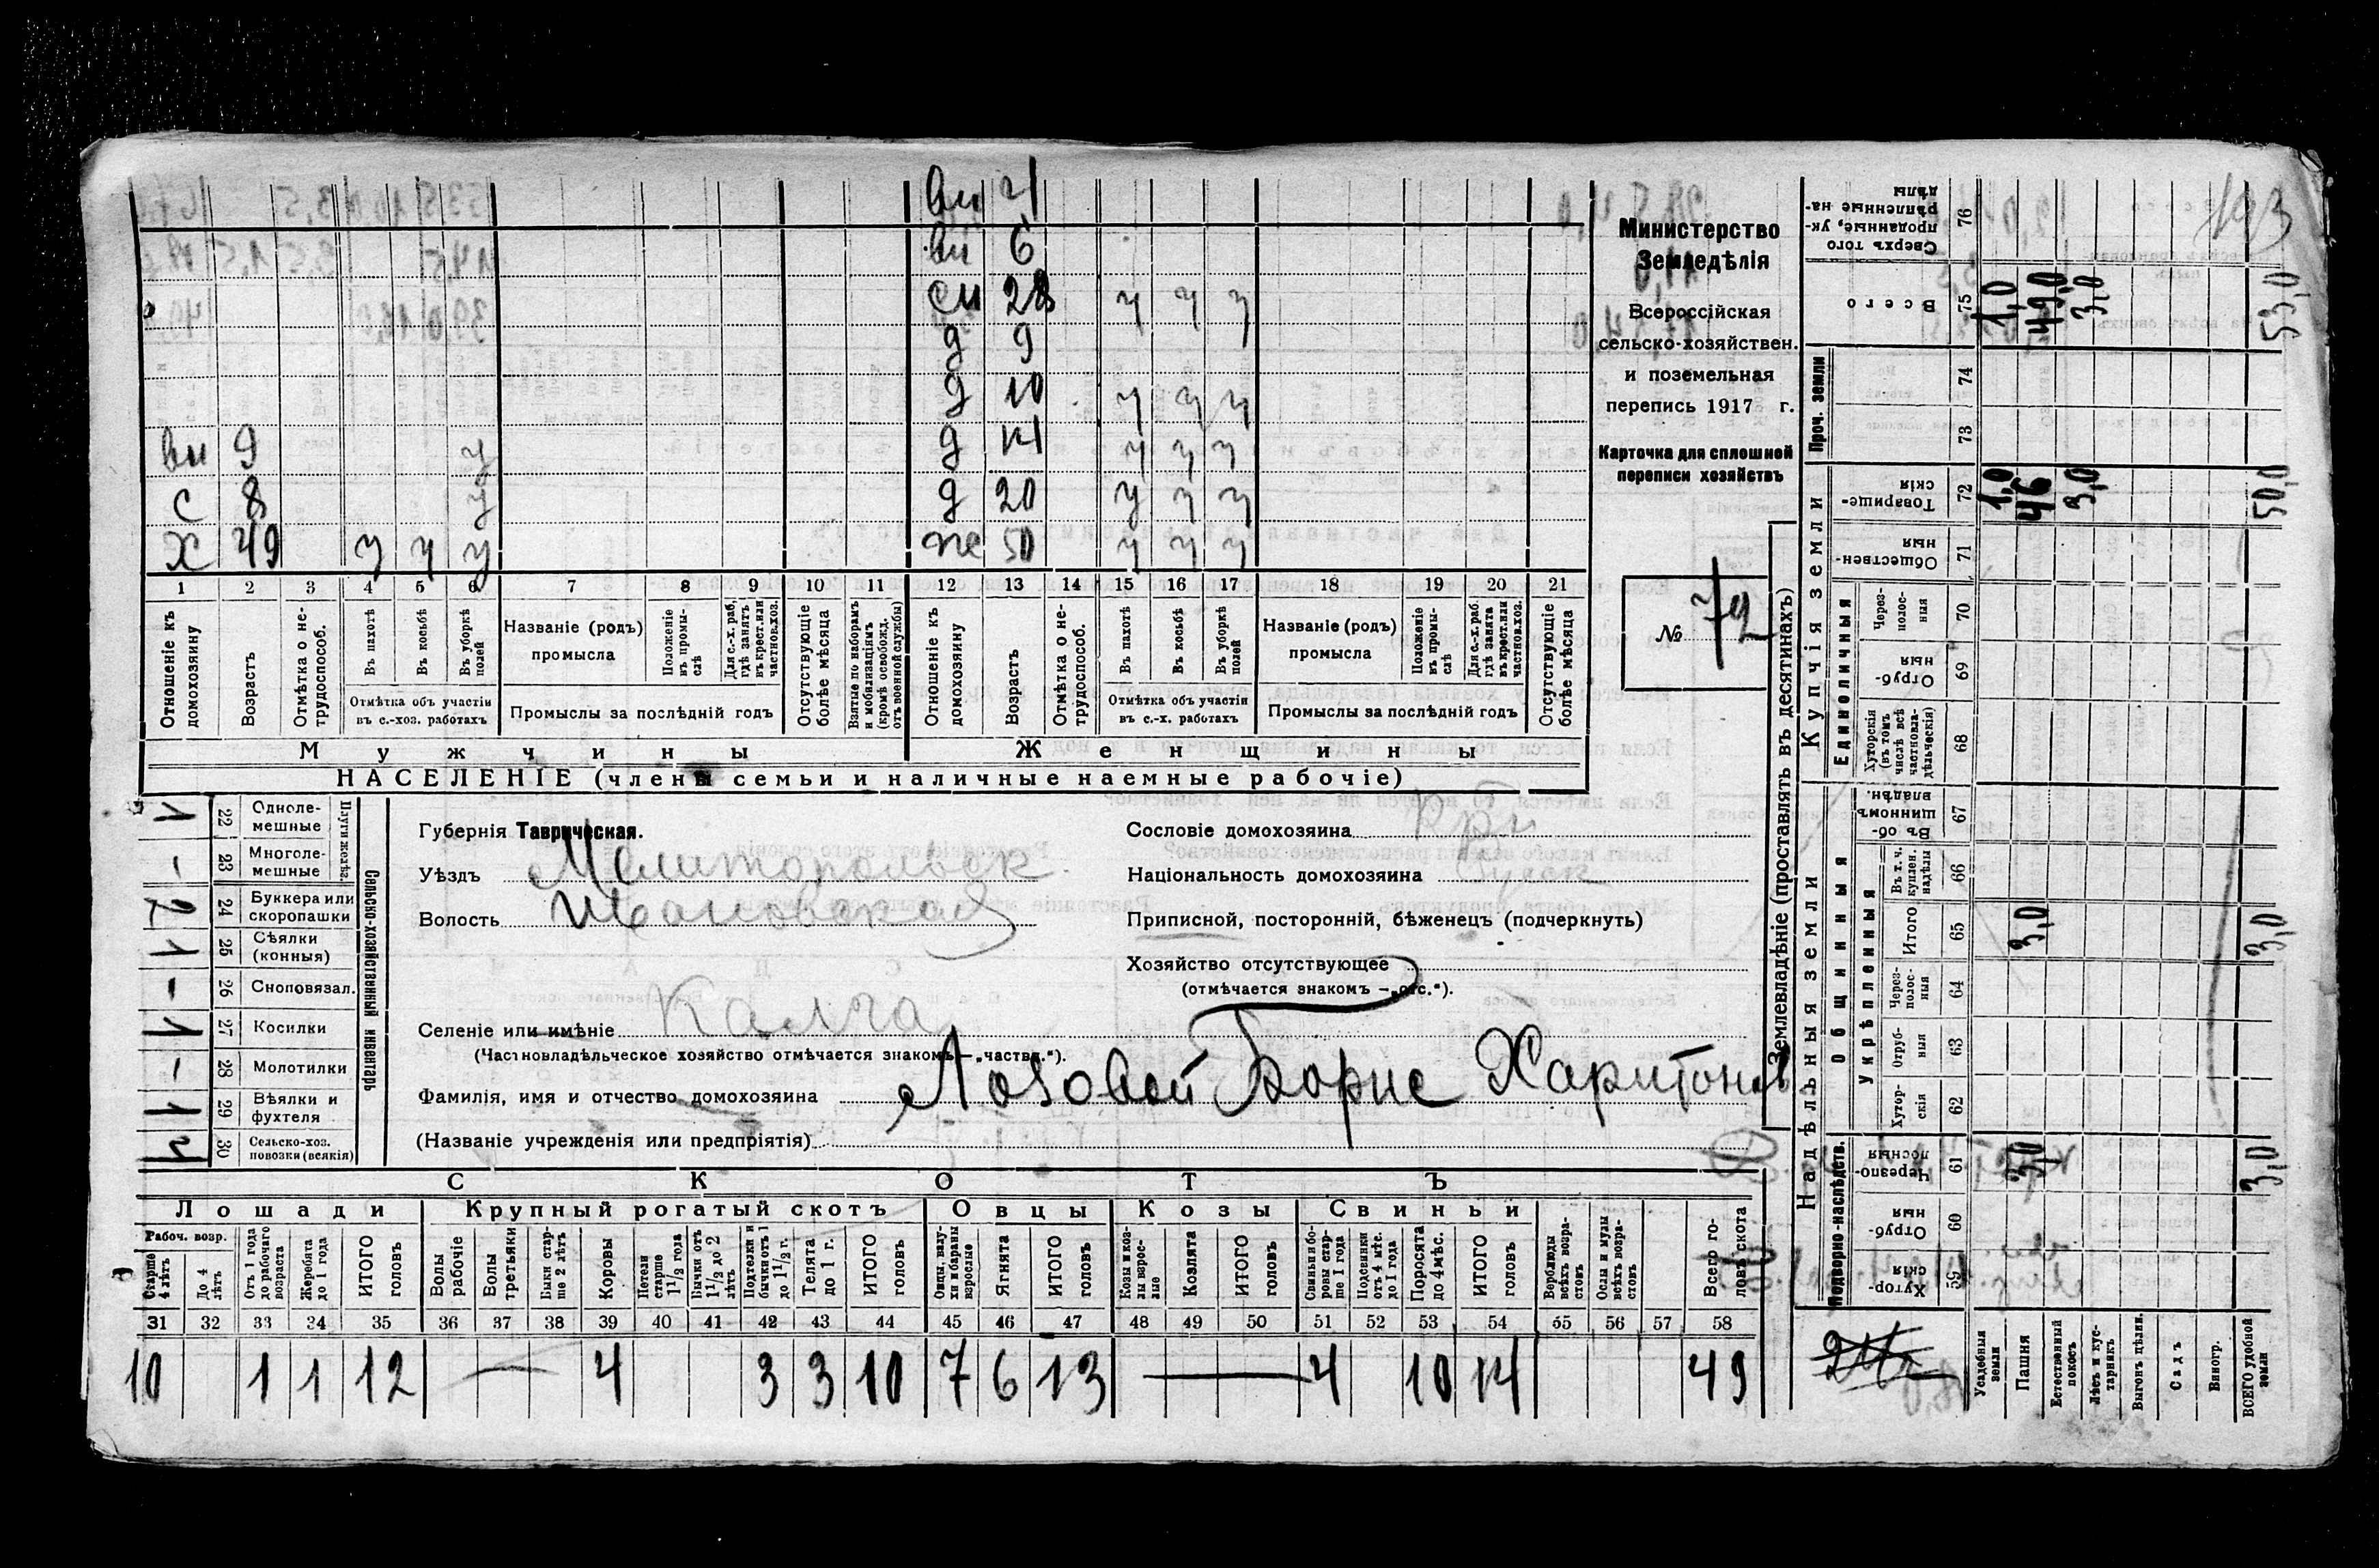 вн 4
вн 6
сн 28 у у у
д 9
д 10 у у у
вн 9 у д 14 у у у
с 8 у д 20 у у у
х 49 у у у же 50 у у у
1 2 3 4 5 6 7 8 9 10 11 12 13 14 15 16 17 18 19 20 21
Отношеніе къ домохозяину
Возрастъ
Отмѣтка о не-трудоспособ.
Въ пахотѣ
Въ косьбѣ
Въ уборкѣ полей
Отмѣтка объ участіи въ с.-хоз. работахъ
Названіе (родъ) промысла
Положеніе въ промы-слѣ
Для с.-х. раб. гдѣ занятъ въ крест. или частнов. хоз.
Промыслы за послѣдній годъ
Отсутствующіе болѣе мѣсяца
Взятые по наборамъ и мобилизаціямъ (кромѣ освобожд. отъ военной службы)
Отношеніе къ домохозяину
Возрастъ
Отмѣтка о не-трудоспособ.
Въ пахотѣ
Въ косьбѣ
Въ уборкѣ полей
Отмѣтка объ участіи въ с.-х. работахъ
Названіе (родъ) промысла
Положеніе въ промы-слѣ
Для с.-х. раб. гдѣ занята въ крест. или частнов. хоз.
Промыслы за послѣдній годъ
Отсутствующіе болѣе мѣсяца
Мужчины Женщины
НАСЕЛЕНІЕ (члены семьи и наличные наемные рабочіе)
Министерство
Земледѣлія
Всероссійская
сельско-хозяйствен.
и поземельная
перепись 1917 г.
Карточка для сплошной
переписи хозяйствъ
№ 72
Сельско-хозяйственный инвентарь
Плуги желѣз.
1 22 Одноле-мешные
– 23 Многоле-мешные
2 24 Буккера или скоропашки
1 25 Сѣялки (конныя)
– 26 Сноповязал.
1 27 Косилки
– 28 Молотилки
1 29 Вѣялки и фухтеля
30 Сельско-хоз. повозки (всякія)
Губернія Таврическая.
Уѣздъ Мелитопольск.
Волость Ивановская
Селеніе или имѣніе Калга
(Частновладѣльческое хозяйство отмѣчается знакомъ — „частвл.“).
Фамилія, имя и отчество домохозяина Лозовой Борис Харитонов
(Названіе учрежденія или предпріятія)
Сословіе домохозяина кр
Національность домохозяина
Приписной, посторонній, бѣженецъ (подчеркнуть)
Хозяйство отсутствующее
(отмѣчается знакомъ — „отс.“).
СКОТЪ
Лошади Крупный рогатый скотъ Овцы Козы Свиньи
Рабоч. возр.
Старше 4 лѣтъ
До 4 лѣтъ
Отъ 1 года до рабочаго возраста
Жеребята до 1 года
ИТОГО головъ
Волы рабочіе
Волы третьяки
Быки стар-ше 2 лѣтъ
Коровы
Нетели старше 1½ года
Бычки отъ 1½ до 2 лѣтъ
Подтелки и бычки отъ 1 до 1½ г.
Телята до 1 г.
ИТОГО головъ
Овцы, валу-хи и бараны взрослые
Ягнята
ИТОГО головъ
Козы и коз-лы взрос-лые
Козлята
ИТОГО головъ
Свиньи и бо-ровы стар-ше 1 года
Подсвинки отъ 4 мѣс. до 1 года
Поросята до 4 мѣс.
ИТОГО головъ
Верблюды всѣхъ возра-стовъ
Ослы и мулы всѣхъ возра-стовъ
Всего го-ловъ скота
31 32 33 34 35 36 37 38 39 40 41 42 43 44 45 46 47 48 49 50 51 52 53 54 55 56 57 58
10 1 1 12 — 4 3 3 10 7 6 13 — 4 10 14 49
Землевладѣніе (проставлять въ десятинахъ)
Надѣльныя земли
Купчія земли
Проч. земли
Подворно-наслѣдств.
Общинныя
Укрѣпленныя
Единоличныя
Сверхъ того проданные, ук-рѣпленные на-дѣлы 76
Всего 75 1,0 49,0 3,0 53,0
74
73
Товарище-скія 72 1,0 46 3,0 50,0
Обществен-ныя 71
Через-полос-ныя 70
Отруб-ныя 69
Хуторскія (въ томъ числѣ всѣ частновла-дѣльческія) 68
Въ об-щинномъ владѣн. 67
Въ т. ч. куплен. надѣлы 66
Итого 65 3,0 3,0
Через-полос-ныя 64
Отруб-ныя 63
Хутор-скія 62
Черезпо-лосныя 61 3,0 3,0
Отруб-ныя 60
Хутор-скія 59
Усадебныя земли
Пашня
Естественный покосъ
Лѣсъ и кус-тарникъ
Выгонъ цѣлин.
Садъ
Виногр.
ВСЕГО удобной земли
193